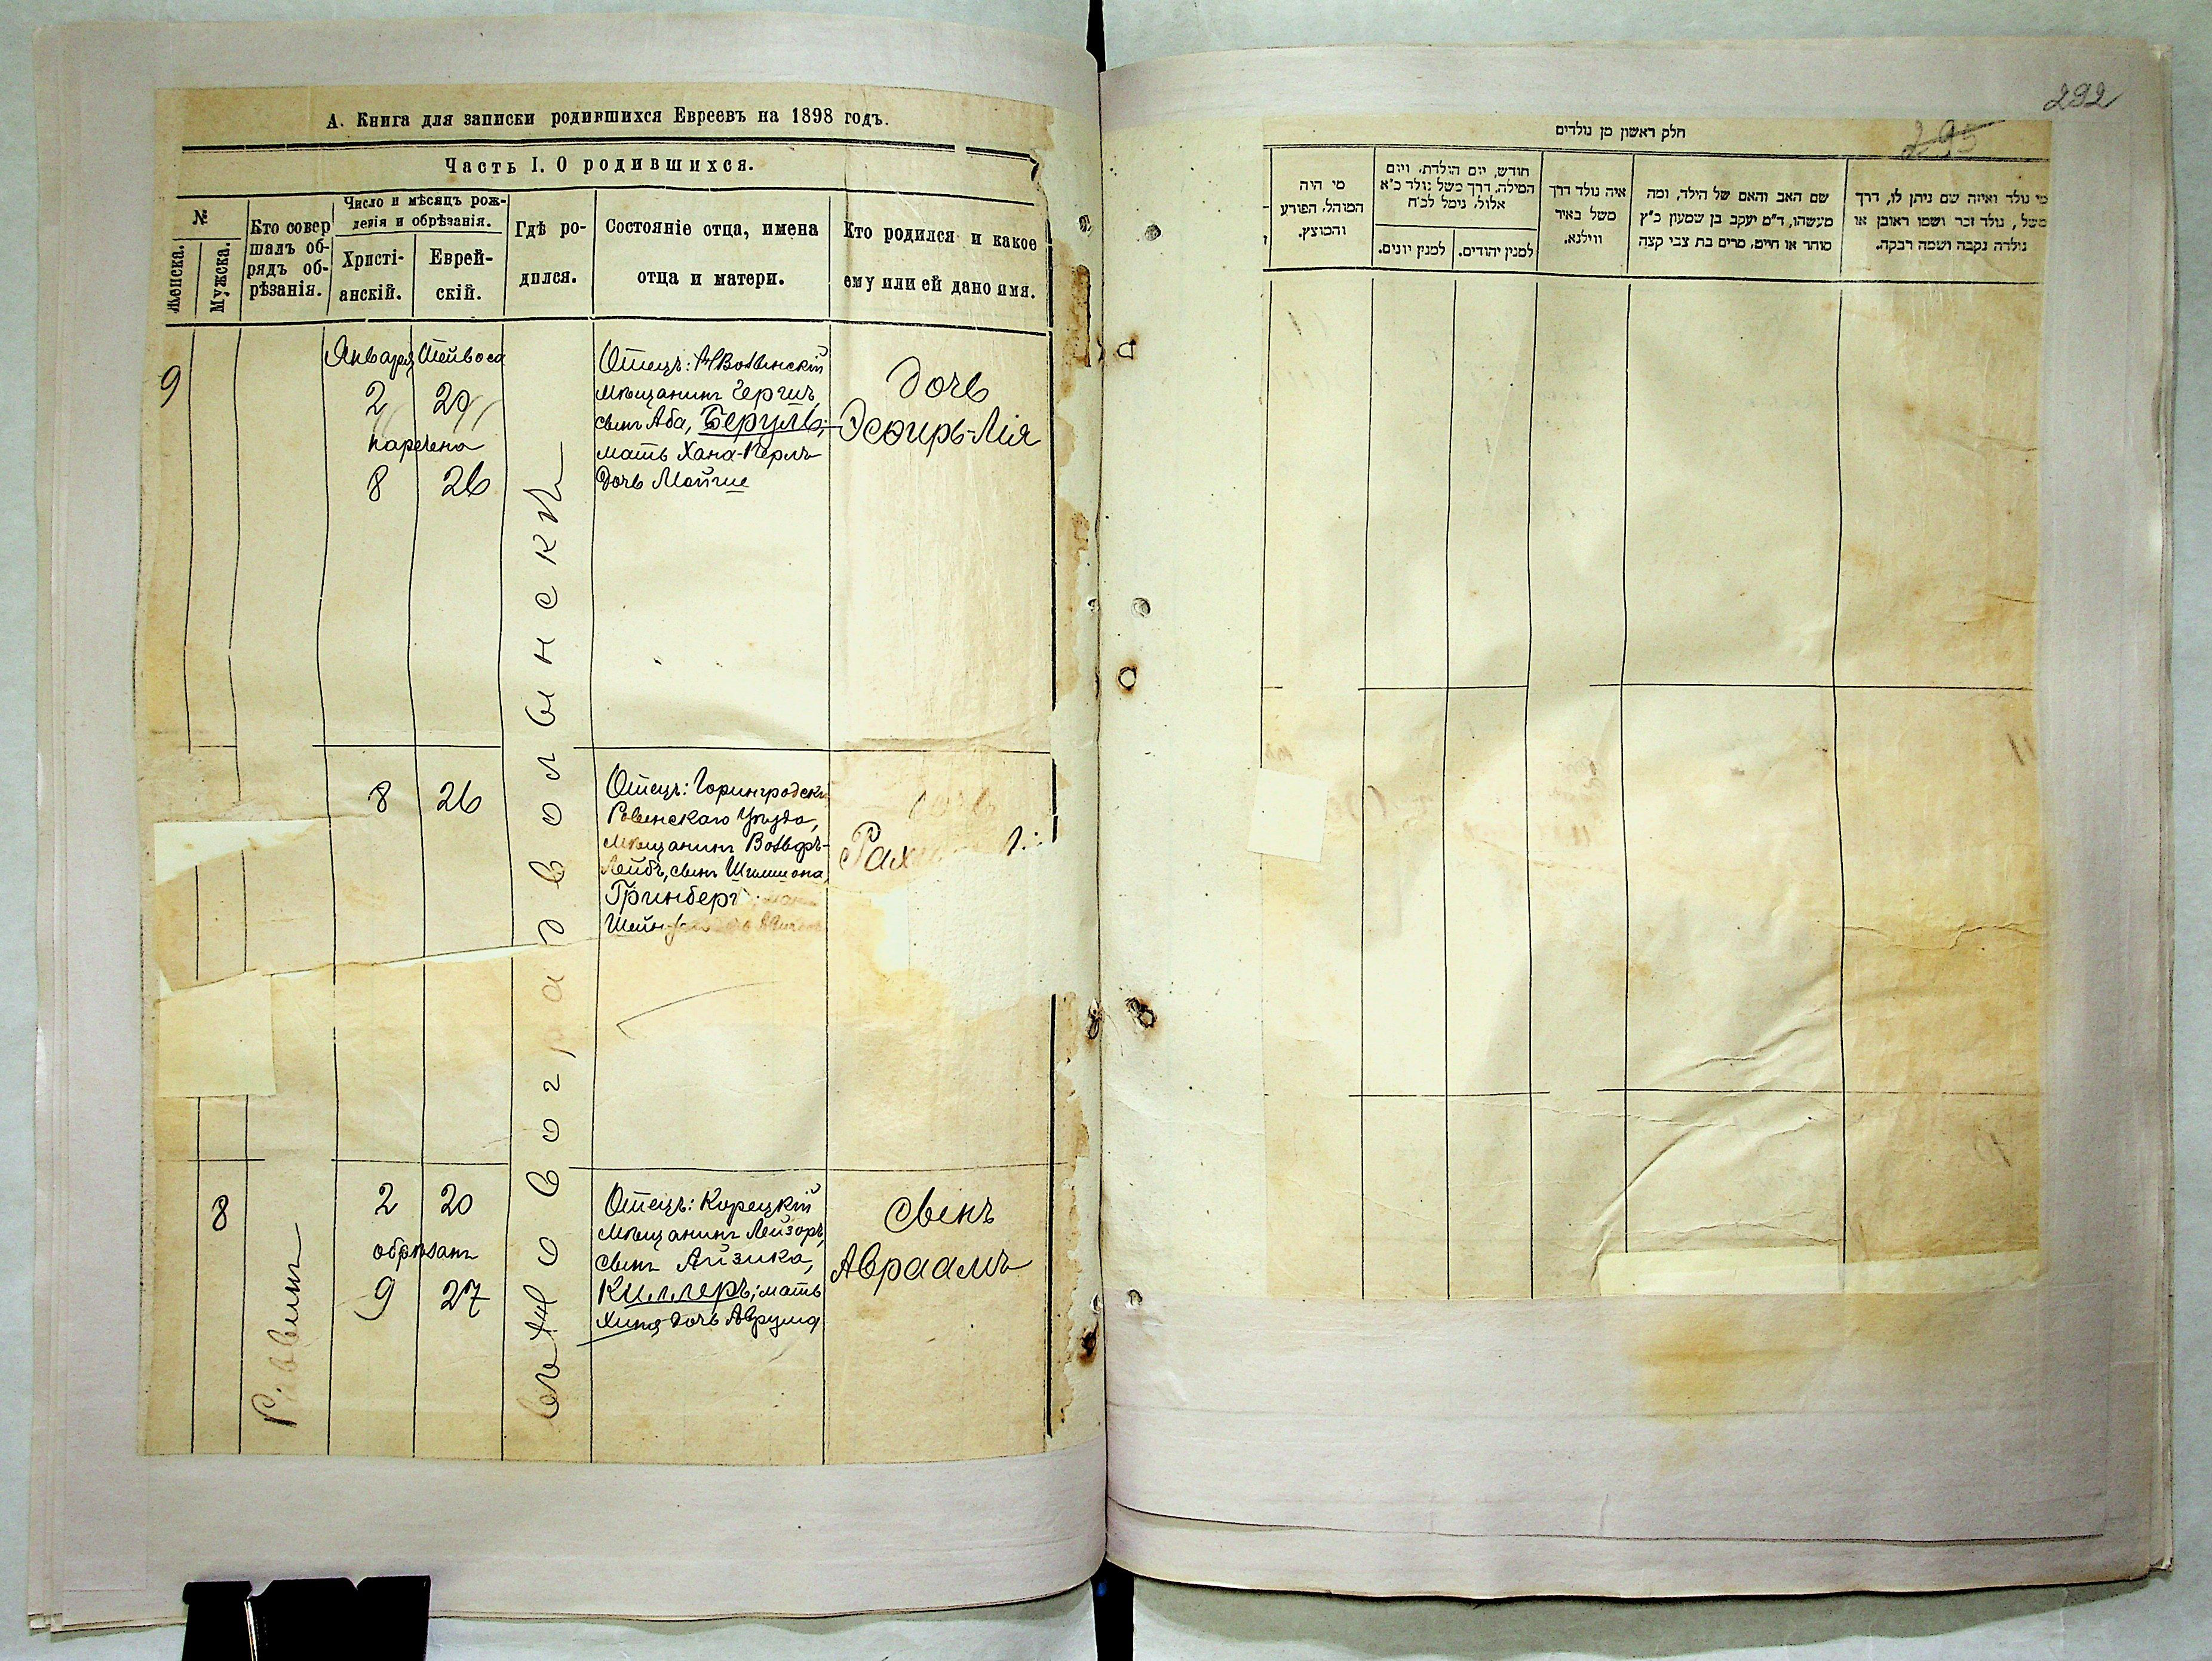 А. Книга для записки родившихся Евреевъ на 1898 годъ.
Часть I. О родившихся.
№
Женска.
Мужска.
Кто совер
шалъ об-
рядъ об-
рѣзанія.
Число и мѣсяцъ рож-
денія и обрѣзанія.
Христі-
анскій.
Еврей-
скій.
Гдѣ ро-
дился.
Состояніе отца, имена
отца и матери.
Кто родился и какое
ему или ей дано имя.
9
Января Тейвоса
2 20
наречена
8 26
Отецъ:
мѣщанинъ Гершъ,
сынъ Аба, Беруль,
мать Хана-Перль
дочь Мойше
дочь
Эсѳирь-Лія
8 26
Отецъ: Горингродскі
Ровенскаго Уѣзда,
мѣщанинъ Вольфъ-
Лейбъ, сынъ Шлиома,
Гринберг
Шейн
Рах
8
Раввинъ
2 20
обрѣзанъ
9 27
Отецъ: Корецкій
мѣщанинъ Лейзоръ,
сынъ Айзика,
Киллеръ; мать
Хина дочь Аврума
сынъ
Авраамъ
Новоградволынскъ
292
295
חלק ראשון מן נולדים
מי נולד ואיזה שם ניתן לו, דרך
משל, נולד זכר ושמו ראובן או
נולדה נקבה ושמה רבקה.
שם האב והאם של הילד, ומה
מעשהו, ד"מ יעקב בן שמעון כ"ץ
סוחר או חיים, מרים בת צבי קצה
איה נולד דרך
משל באיר
ווילנא.
חודש, יום הולדת, ויום
המילה, דרך משל נולד כ"א
אלול, נימל לכ"ח
למנין יהודים.
למנין יונים.
מי היה
המוהל, הפורע
והמוצץ.